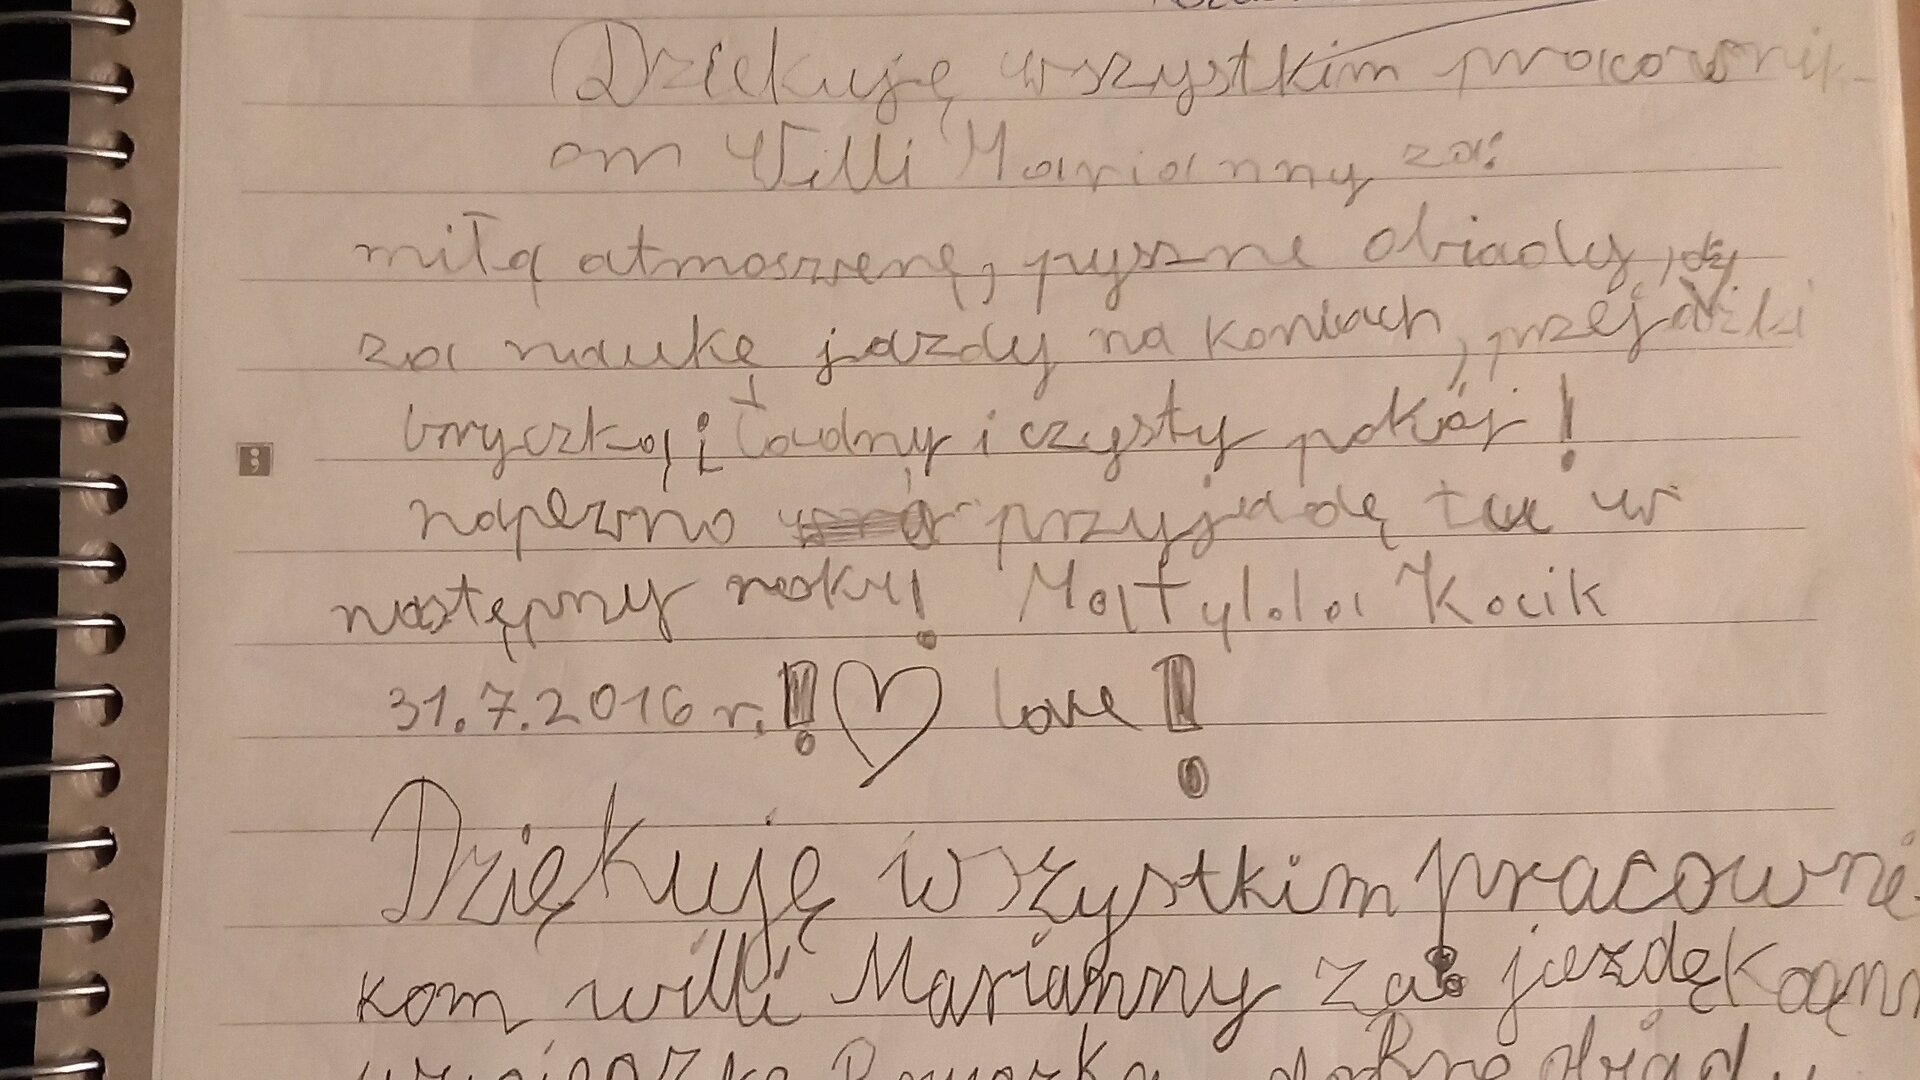 Dziekuję wszystkim pracownik-
om Willi Marianny za:
miłą atmoswerę, pyszne obiady,
za naukę jazdy na koniach, przejażdżki
bryczką i ładny i czysty pokój!
napewno przyjadę tu w
następny roku! Matylda Kocik
31.7.2016 r.! love!
Dziękuję wszystkim pracowni-
kom willi Marianny za: jazdę
dobre obiady